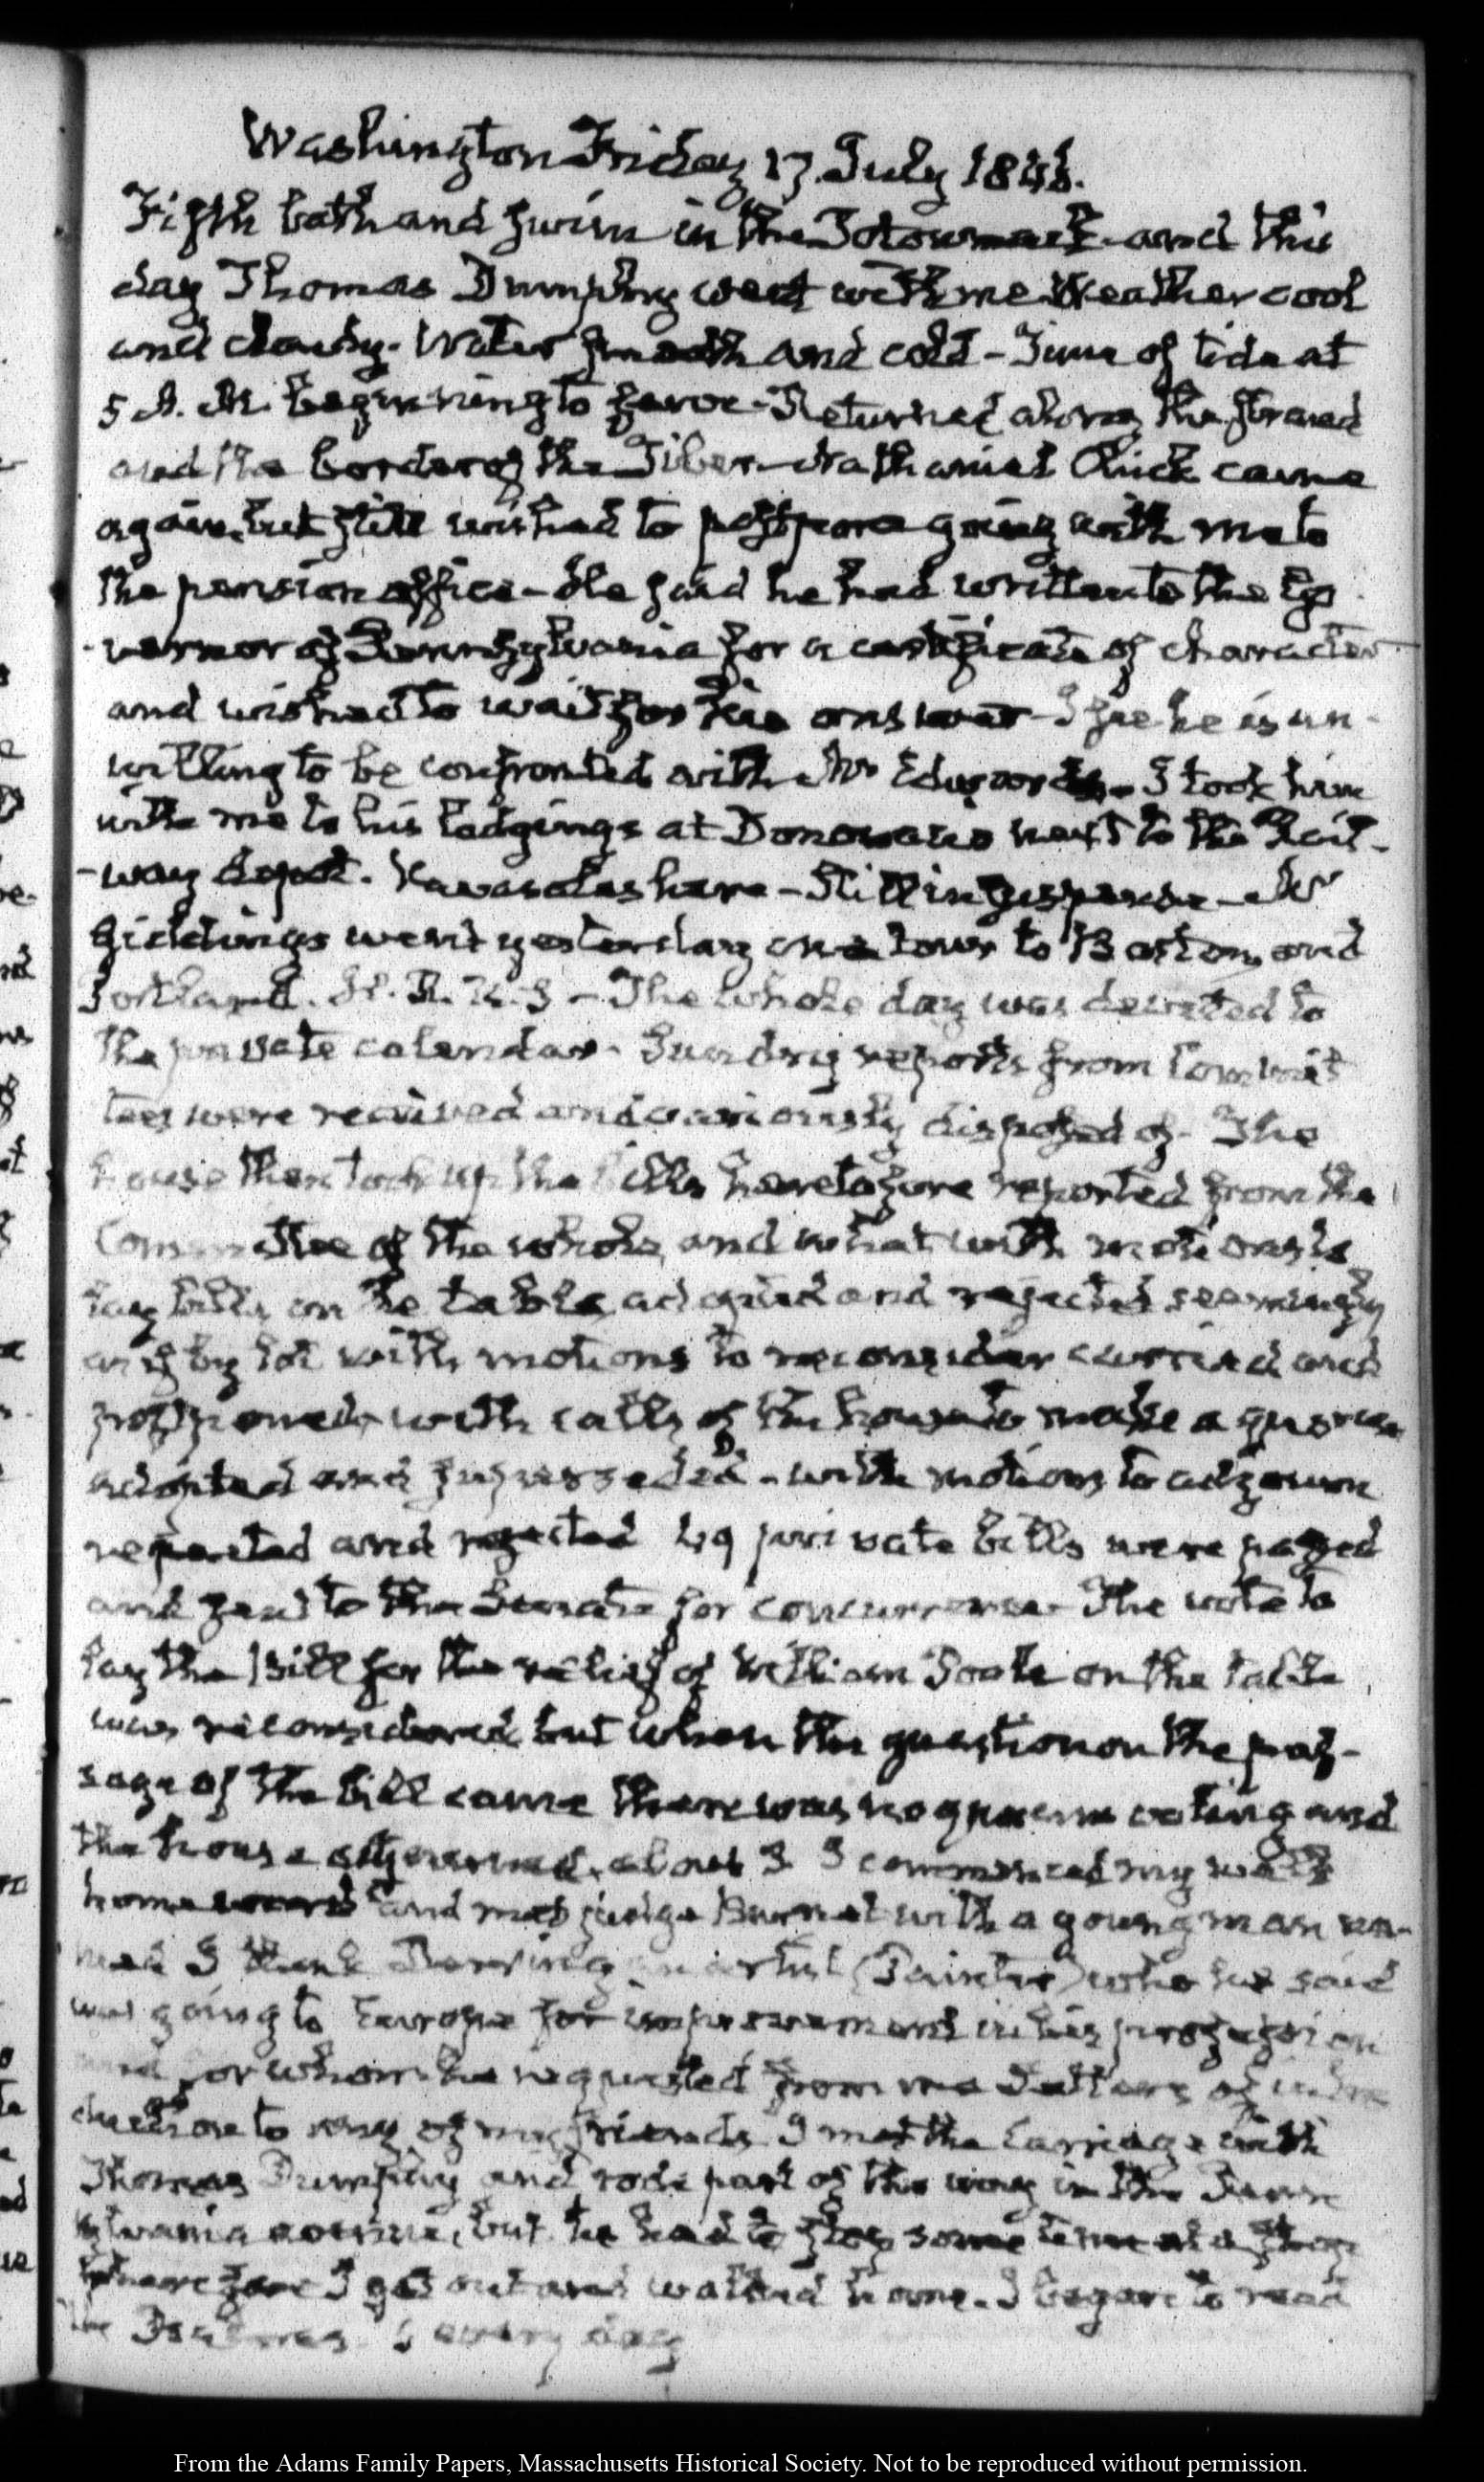 Washington Friday 17. July 1846.
Fifth bath and swim in the Potowmack and this
day Thomas Dumphy went with me Weather cool
and cloudy. Water smooth and cold - Time of tide at
5 A. M. beginning to
Returned along the strand
and the border of the Tiber - Nathaniel Quick came
again, but still wished to postpone going with me to
the pension office - He said he had written to the Go
-vernor of Pennsylvania for a certificate of character
and wished to wait for his answer - I see he is un-
willing to be confronted with Mr Edwards - I took him
with me to his lodgings at Donovans next to the Rail-
-way depot. Kavasales here - Still in suspense - Mr
Giddings went yesterday on a tour to Boston and
Portland. H. R. U. S - The whole day was devoted to
the private calendar. Sundry reports from Commit
tees were received and variously disposed of. The
house then took up the bills heretofore reported from the
Committee of the whole, and what with motions to
lay bills on the table, acquired and rejected seemingly
as if by lot with motions to reconsider carried and
postponed, with calls of the house to make a quorum
adopted and superseded - with motions to adjourn
repeated and rejected 49 private bills were passed
and sent to the Senate for concurrence. The vote to
lay the Bill for the relief of William Poole on the table
was reconsidered but when the question on the pas-
sage of the bill came there was no quorum voting and
the house adjourned. about 3. I commenced my walk
homeward and met judge Burnet with a young man na-
med I think an artist (Painter) who he said
was going to Europe for improvement in his profession
and for whom he requested from me Letters of intro
duction to any of my friends. I met the Carriage with
Thomas Dumphy and rode part of the way in the Penn
sylvania avenue, but he had to stop some time at a stop
wherefore I got out and walked home. I began to read
the Psalms. 5 every day
From the Adams Family Papers, Massachusetts Historical Society. Not to be reproduced without permission.